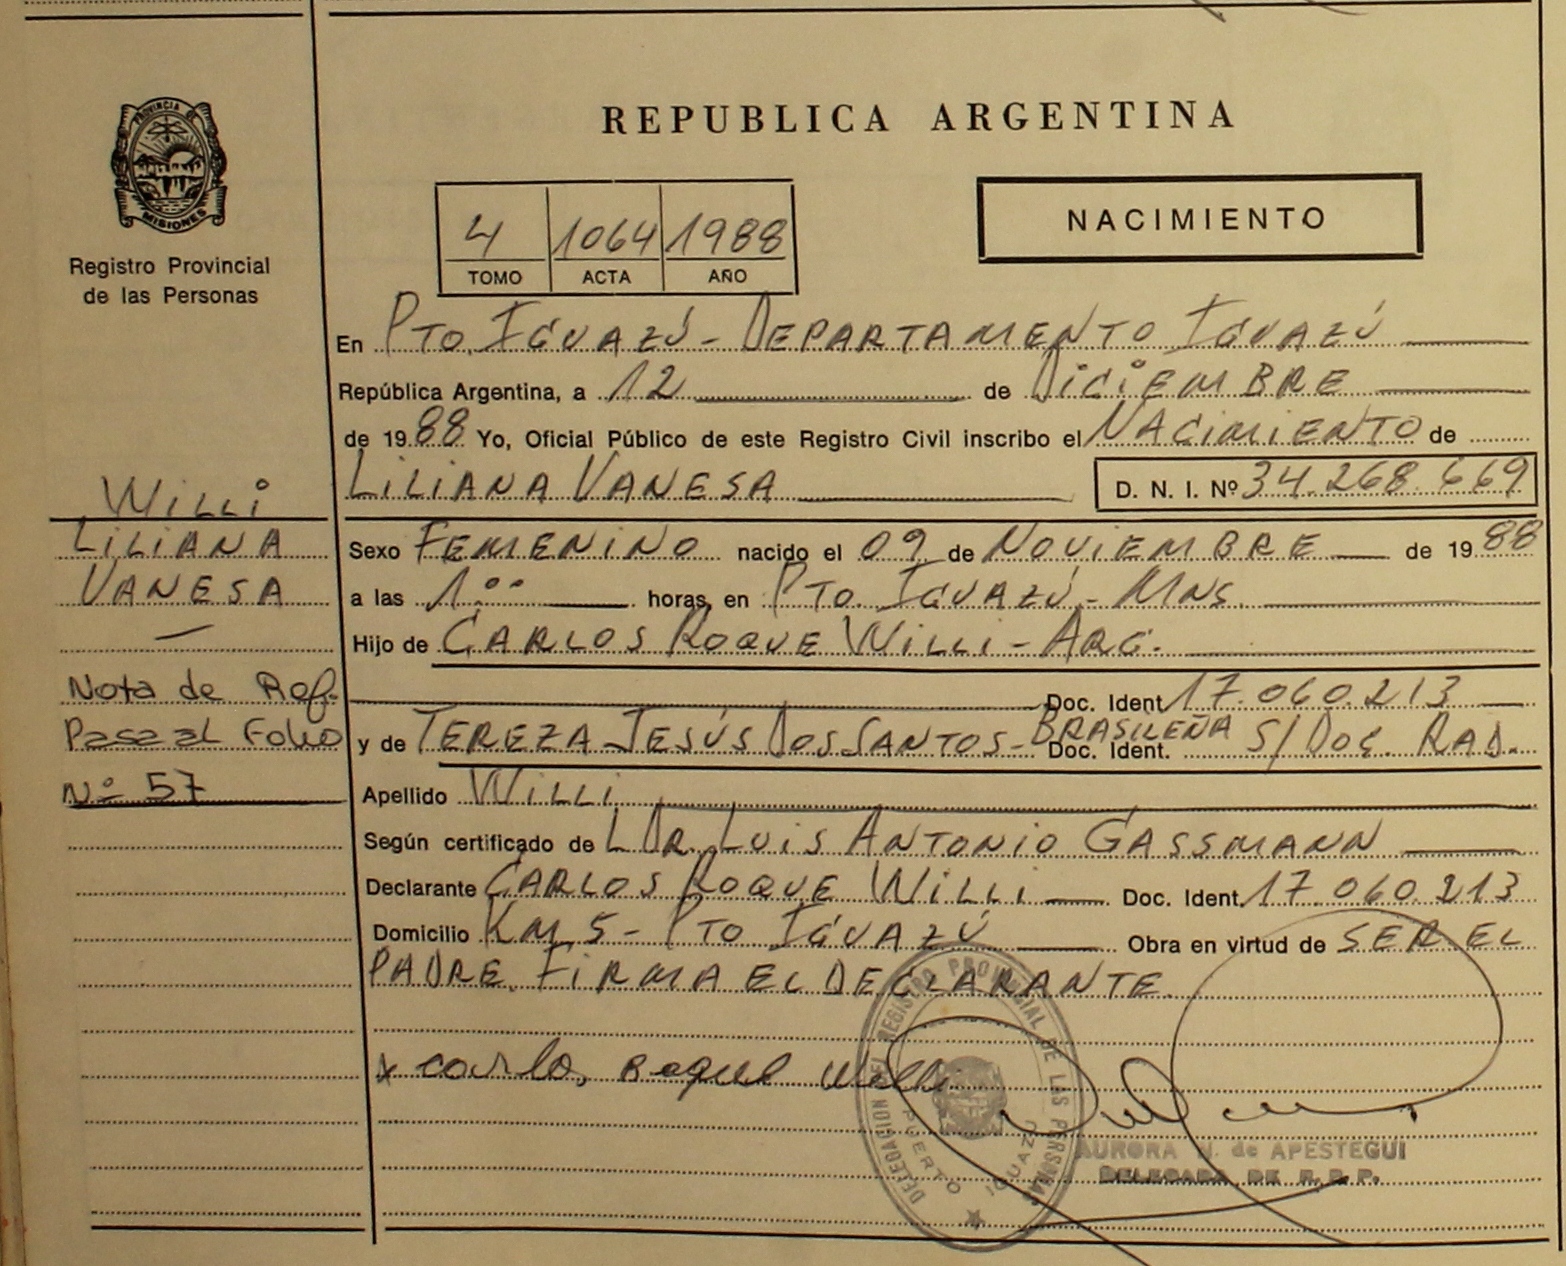 PROVINCIA D.
MISIONES
Registro Provincial
de las Personas
WILLI
LILIANA
VANESA
—
Nota de Ref.
Pasa al Folio
Nº 57
REPUBLICA ARGENTINA
4 1064 1988
TOMO ACTA AÑO
NACIMIENTO
En PTO. IGUAZÚ - DEPARTAMENTO IGUAZÚ
República Argentina, a 12 de DICIEMBRE
de 1988 Yo, Oficial Público de este Registro Civil inscribo el NACIMIENTO de
LILIANA VANESA D. N. I. Nº 34.268.669
Sexo FEMENINO nacido el 09 de NOVIEMBRE de 1988
a las 1:00 horas, en PTO. IGUAZÚ - MNS.
Hijo de CARLOS ROQUE WILLI - ARG.
Doc. Ident. 17.060.213
y de TEREZA JESÚS DOS SANTOS - BRASILEÑA Doc. Ident. S/DOC. RAD.
Apellido WILLI
Según certificado de L DR. LUIS ANTONIO GASSMANN
Declarante CARLOS ROQUE WILLI Doc. Ident. 17.060.213
Domicilio KM 5 - PTO IGUAZÚ Obra en virtud de SER EL
PADRE. FIRMA EL DECLARANTE.
x Carlos Roque Willi
DELEGACION DEL REGISTRO PROVINCIAL DE LAS PERSONAS
PUERTO IGUAZU
AURORA N. de APESTEGUI
DELEGADA DE R.P.P.